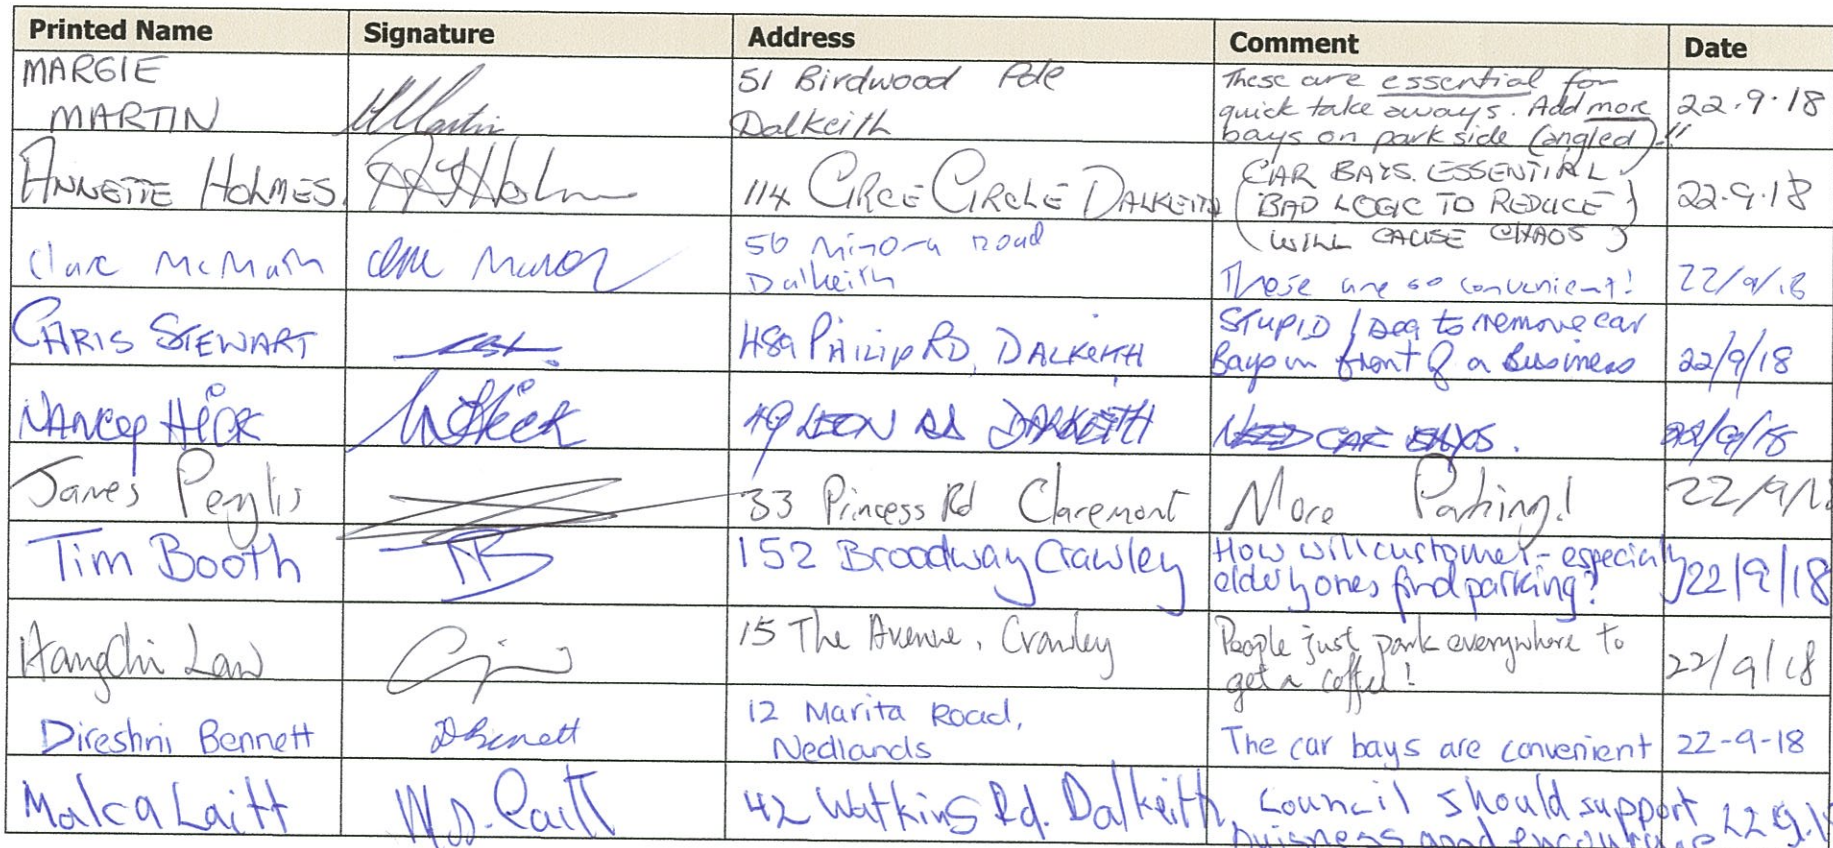 Printed Name Signature Address Comment Date
MARGIE MARTIN 51 Birdwood Pde Dalkeith These are essential for quick take aways. Add more bays on park side (angled)!! 22.9.18
ANNETTE HOLMES 114 CIRCE CIRCLE DALKEITH CAR BAYS ESSENTIAL (BAD LOGIC TO REDUCE) (WILL CAUSE CHAOS) 22.9.18
Clare McMath 56 Minora road Dalkeith These are so convenient! 22/9/18
CHRIS STEWART 48a PHILIP RD, DALKEITH STUPID Idea to remove car Bays in front of a Business 22/9/18
NANCY HICK 19 LEON Rd DALKEITH NEED CAR BAYS. 22/9/18
James Penglis 33 Princess Rd Claremont More Parking! 22/9/1
Tim Booth TB 152 Broadway Crawley How will customer - especially elderly ones find parking? 22/9/18
HangChi Law 15 The Avenue, Crawley People just park everywhere to get a coffee! 22/9/18
Direshni Bennett DBennett 12 Marita Road, Nedlands The car bays are convenient 22-9-18
Malca Laitt 42 Watkins Rd. Dalkeith Council should support buisness and encourage 22.9.1